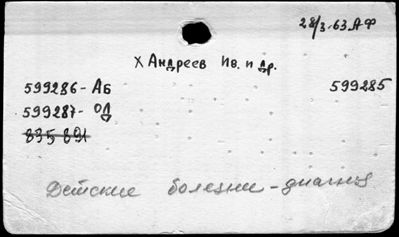 28/3-63. АФ
Х Андреев Ив. и др.
599286- Аб 599285
599287- ОД
835891
Детские болезни - диагноз